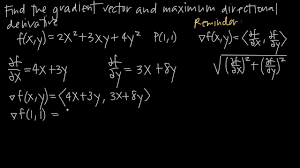 Find the gradient vector and maximum directional
derivative
Reminder:
f(x,y) = 2x² + 3xy + 4y² P(1,1)
∇f(x,y) = ⟨∂f/∂x, ∂f/∂y⟩
∂f/∂x = 4x+3y ∂f/∂y = 3x+8y
√((∂f/∂x)² + (∂f/∂y)²)
∇f(x,y) = ⟨4x+3y, 3x+8y⟩
∇f(1,1) =